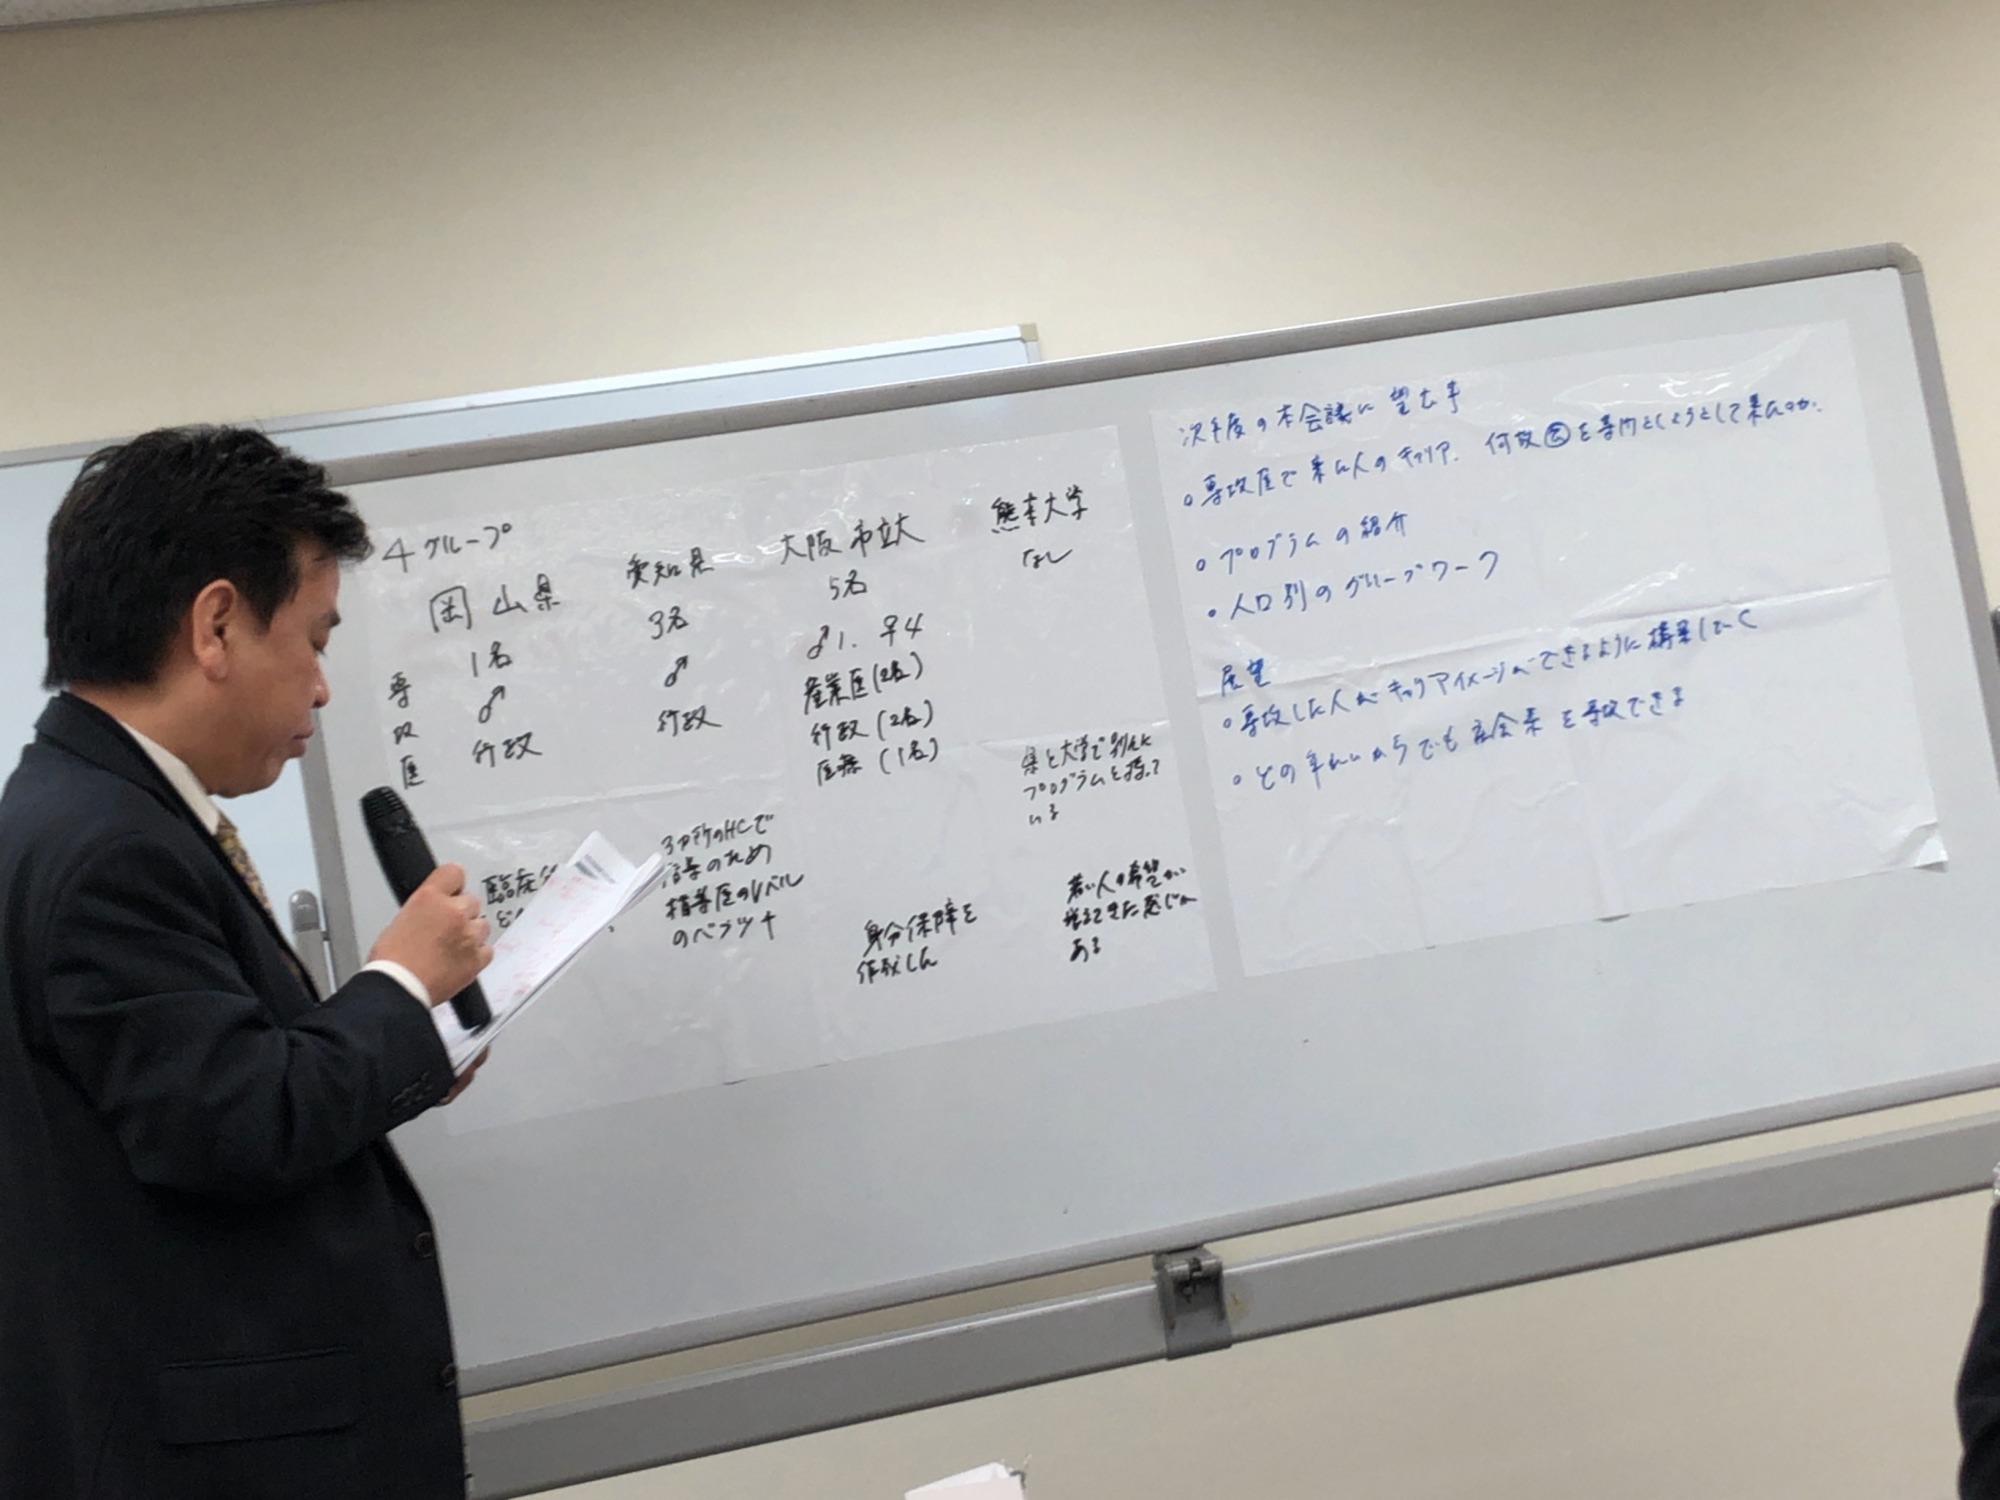 4グループ
岡山県
1名
♂
行政
愛知県
3名
♂
行政
大阪市立大
5名
♂1. ♀4
産業医(2名)
行政(2名)
医療(1名)
熊本大学
なし
専攻医
臨床
3カ所のHCで
指導のため
指導医のレベル
のベラツキ
身分保障を
作成した
県と大学で別々に
プログラムを持って
いる
若い人の希望が
出てきた感じが
ある
次年度の本会議に望む事
○専攻医で来た人のキャリア. 何故㊓を専門としようとして来たのか.
○プログラムの紹介
○人口別のグループワーク
展望
○専攻した人がキャリアイメージができるように構築していく
○どの年れいからでも社会系を専攻できる